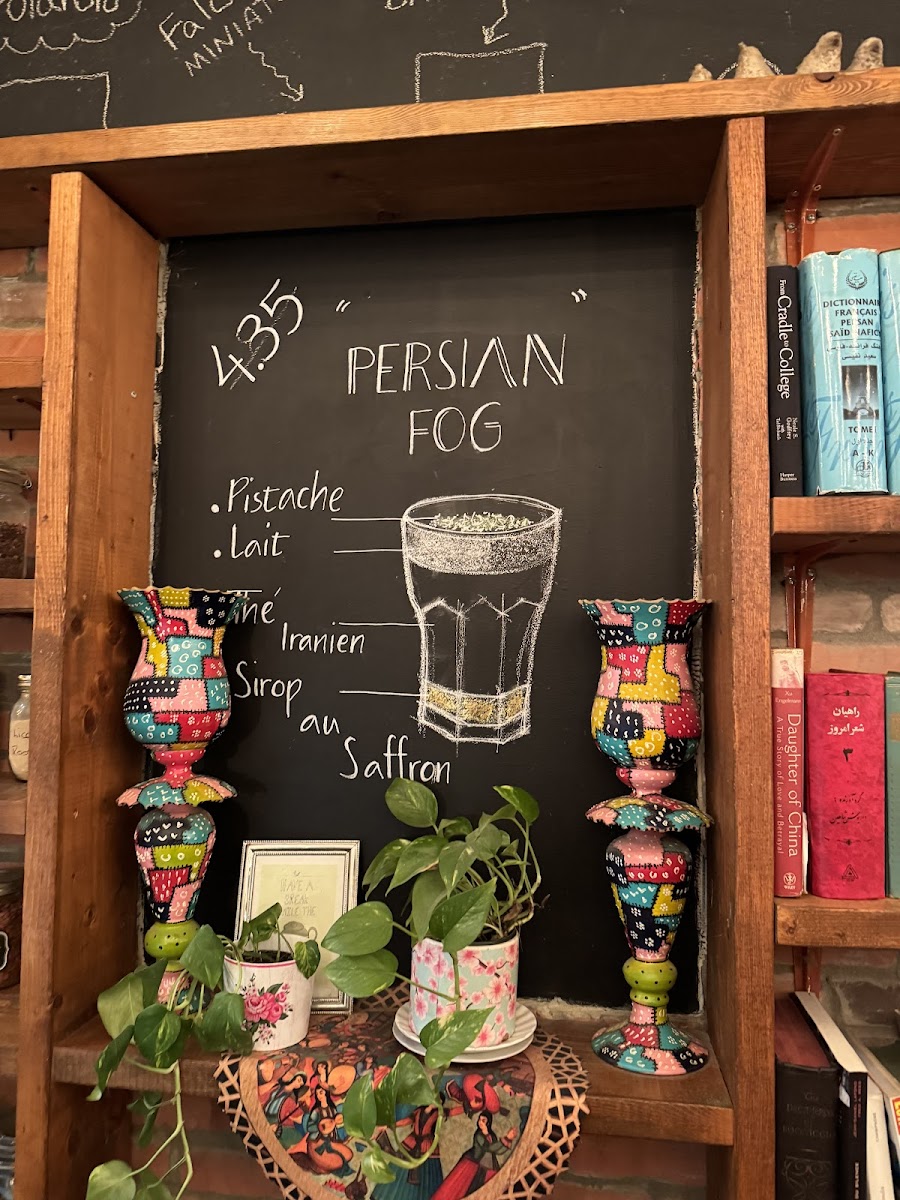 MINIAT
4.35
" "
PERSIAN
FOG
. Pistache
. Lait
Iranien
Sirop
au
Saffron
LEAVE A
From Cradle to College
DICTIONNAIRE
FRANÇAIS
PERSAN
SAÏD NAFICY
سعید نفیسی
TOME I
A - K
Daughter of China
A True Story of Love and Betrayal
راهیان
شعر امروز
۳